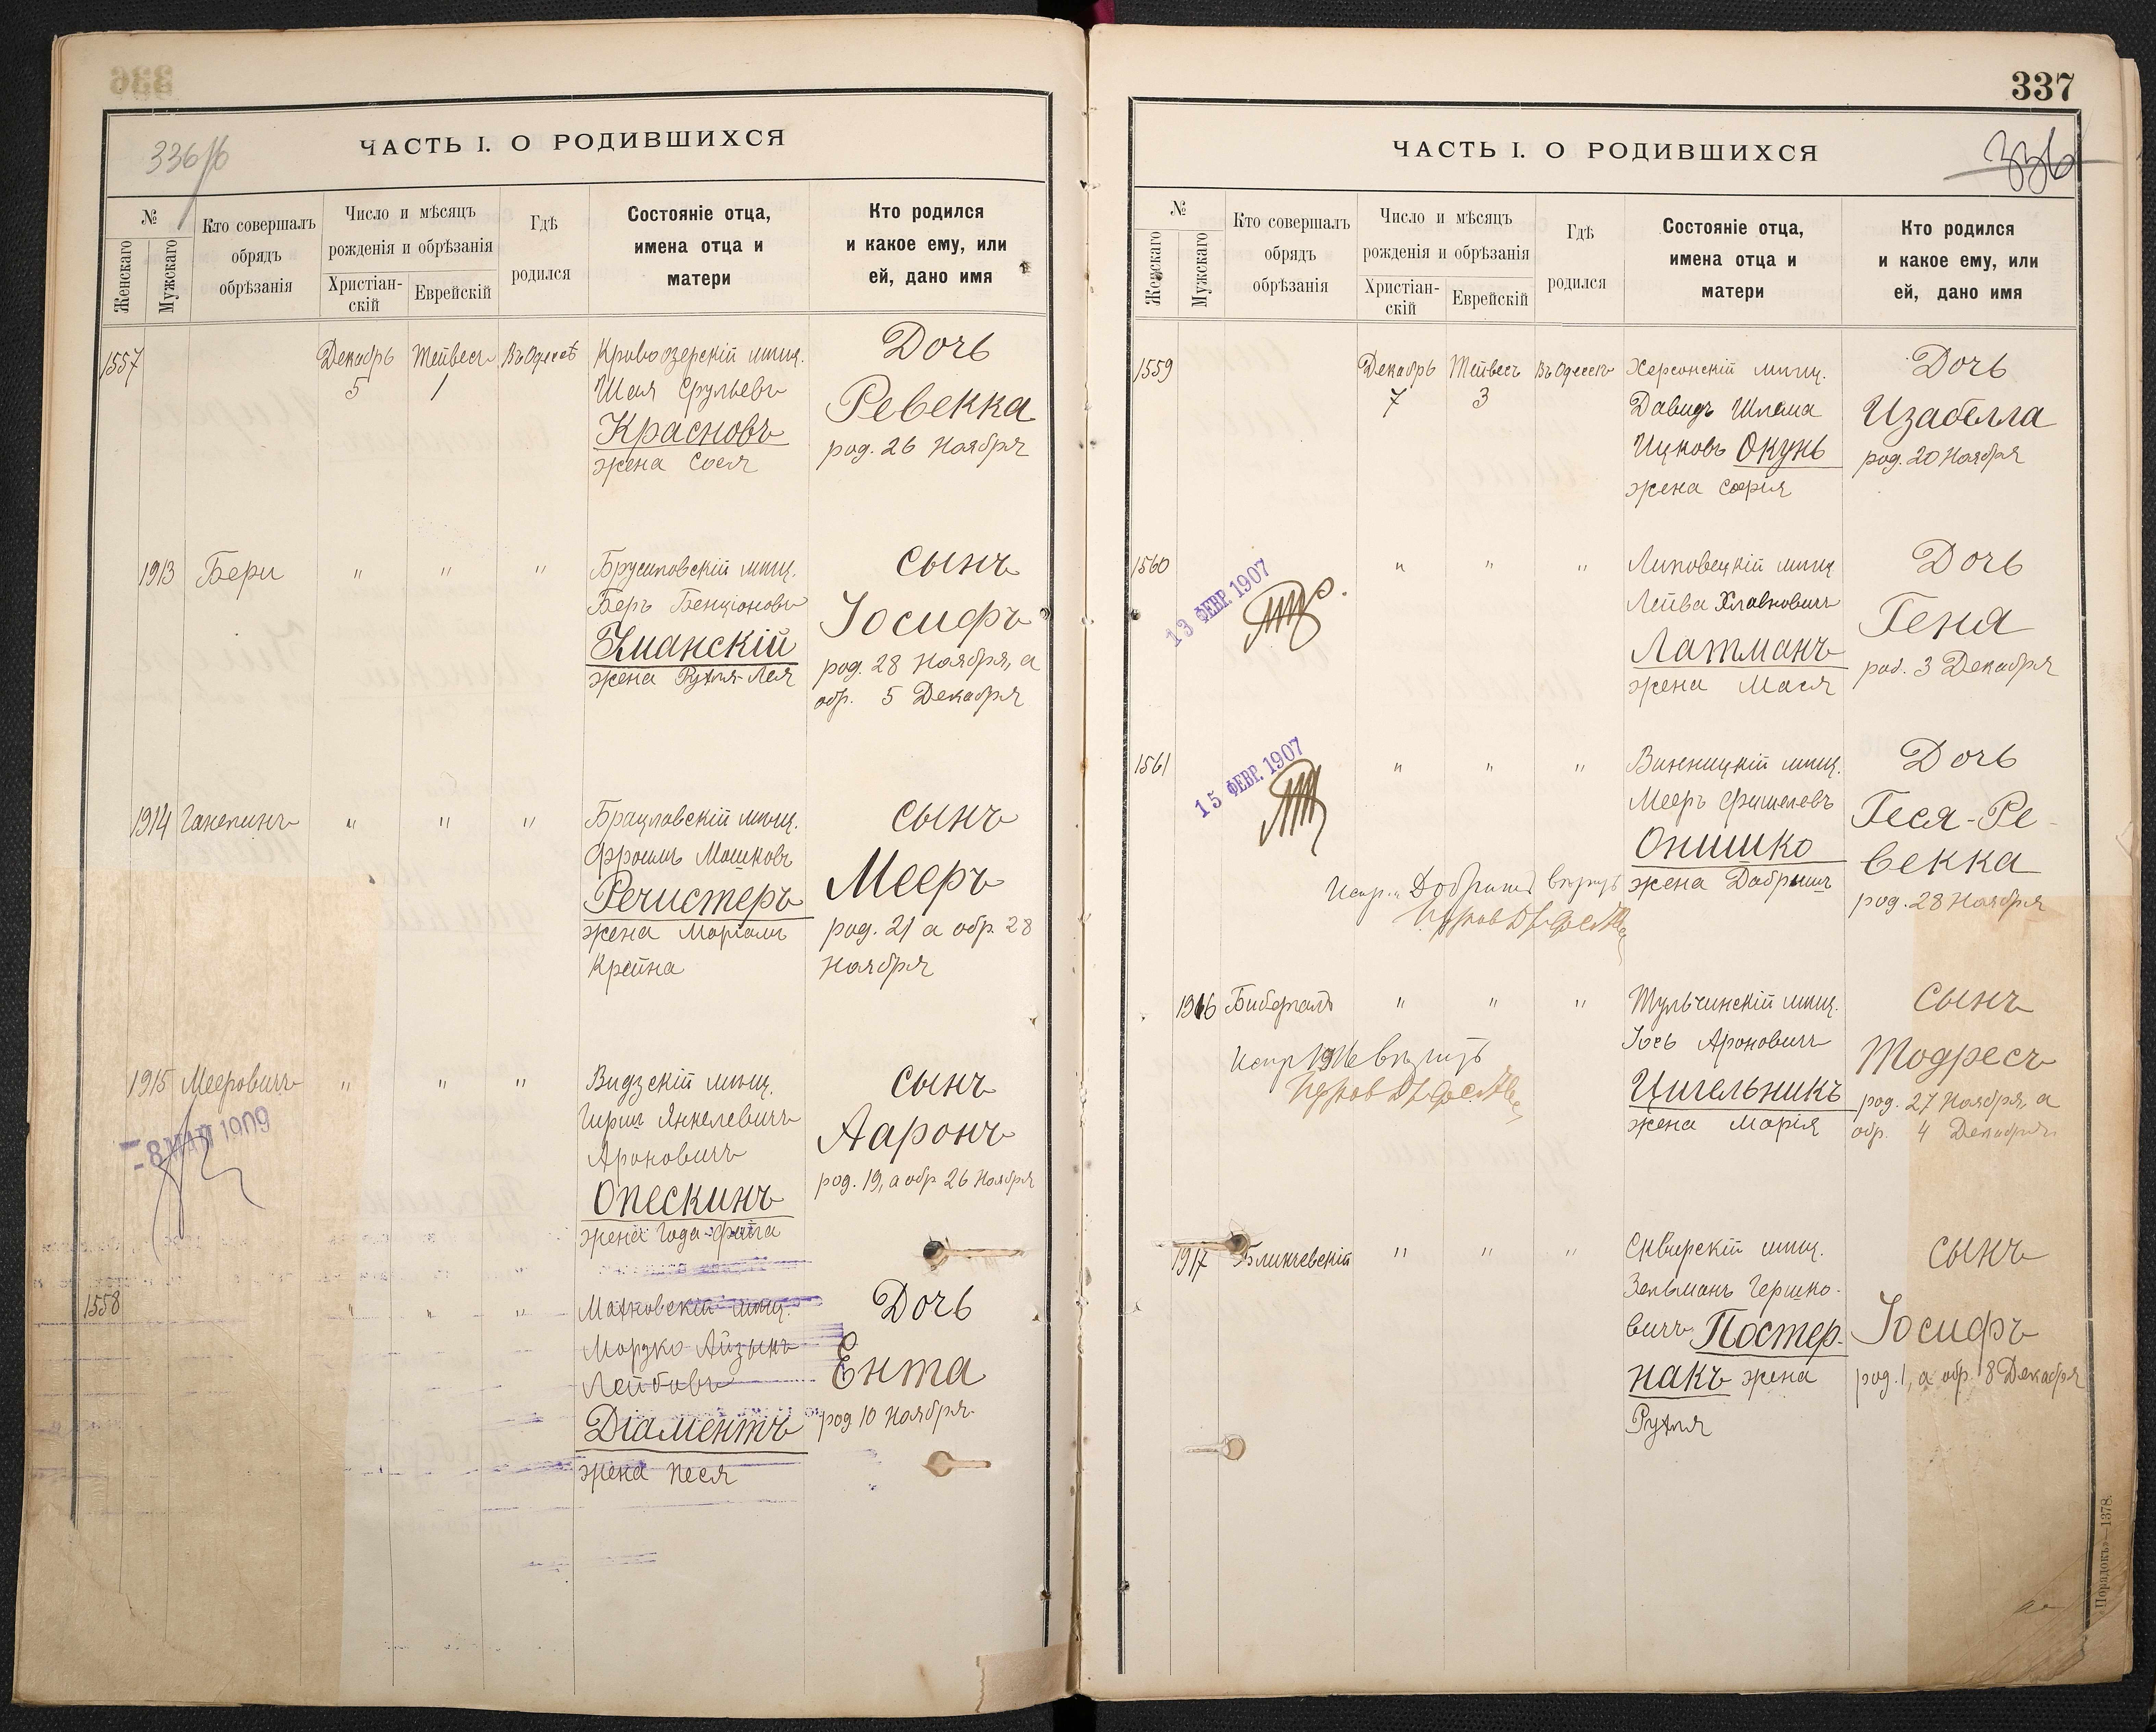 336
336 об
ЧАСТЬ I. О РОДИВШИХСЯ
№
Женскаго
Мужскаго
Кто совершалъ
обрядъ
обрѣзанія
Число и мѣсяцъ
рожденія и обрѣзанія
Христіан-
скій
Еврейскій
Гдѣ
родился
Состояніе отца,
имена отца и
матери
Кто родился
и какое ему, или
ей, дано имя
1557
Декабрь
5
Тейвесъ
1
Въ Одессѣ
Кривоозерскій мѣщ.
Шая Срульевъ
Красновъ
жена Сося
Дочь
Ревекка
род. 26 Ноября
1913
Бери
"
"
"
Брусиловскій мѣщ.
Беръ Бенціоновъ
Уманскій
жена Рухля-Лея
Сынъ
Іосифъ
род. 28 Ноября, а
обр. 5 Декабря
1914
"
"
"
Брацлавскій мѣщ.
Фроимъ Мошковъ
Речистеръ
жена Маріамъ
Крейна
Сынъ
Мееръ
род. 21 а обр. 28
Ноября
1915
Мееровичъ
"
"
"
- 8 МАЯ 1909
Видзскій мѣщ.
Гиршъ Янкелевичъ
Ароновичъ
Опескинъ
жена Года-Файга
Сынъ
Ааронъ
род. 19, а обр 26 Ноября
1558
"
"
"
Махновскій мѣщ.
Мордко Айзикъ
Лейбовъ
Діаментъ
жена Песя
Дочь
Ента
род 10 Ноября
337
336
ЧАСТЬ I. О РОДИВШИХСЯ
№
Женскаго
Мужскаго
Кто совершалъ
обрядъ
обрѣзанія
Число и мѣсяцъ
рожденія и обрѣзанія
Христіан-
скій
Еврейскій
Гдѣ
родился
Состояніе отца,
имена отца и
матери
Кто родился
и какое ему, или
ей, дано имя
1559
Декабрь
7
Тейвесъ
3
Въ Одессѣ
Херсонскій мѣщ.
Давидъ Шлема
Ицковъ Окунь
жена Софія
Дочь
Изабелла
род. 20 Ноября
1560
13 ФЕВР. 1907
"
"
"
Липовецкій мѣщ
Лейва Хлавновичъ
Латманъ
жена Мася
Дочь
Геня
род. 3 Декабря
1561
15 ФЕВР. 1907
"
"
"
Винницкій мѣщ.
Мееръ Фишелевъ
Онишко
жена Добришъ
Дочь
Геся-Ре-
векка
род. 28 Ноября
Испр. "Добришъ" вѣрить
1916
"
"
"
Испр 1916 вѣрить
Тульчинскій мѣщ.
Іось Ароновичъ
Цигельникъ
жена Марія
Сынъ
Тодресъ
род. 27 Ноября, а
обр. 4 Декабря
1917
Бликчевскій
"
"
"
Сквирскій мѣщ.
Зельманъ Гершко-
вичъ Постер-
накъ жена
Рухля
Сынъ
Іосифъ
род. 1, а обр. 8 Декабря
Порядокъ»—1378.